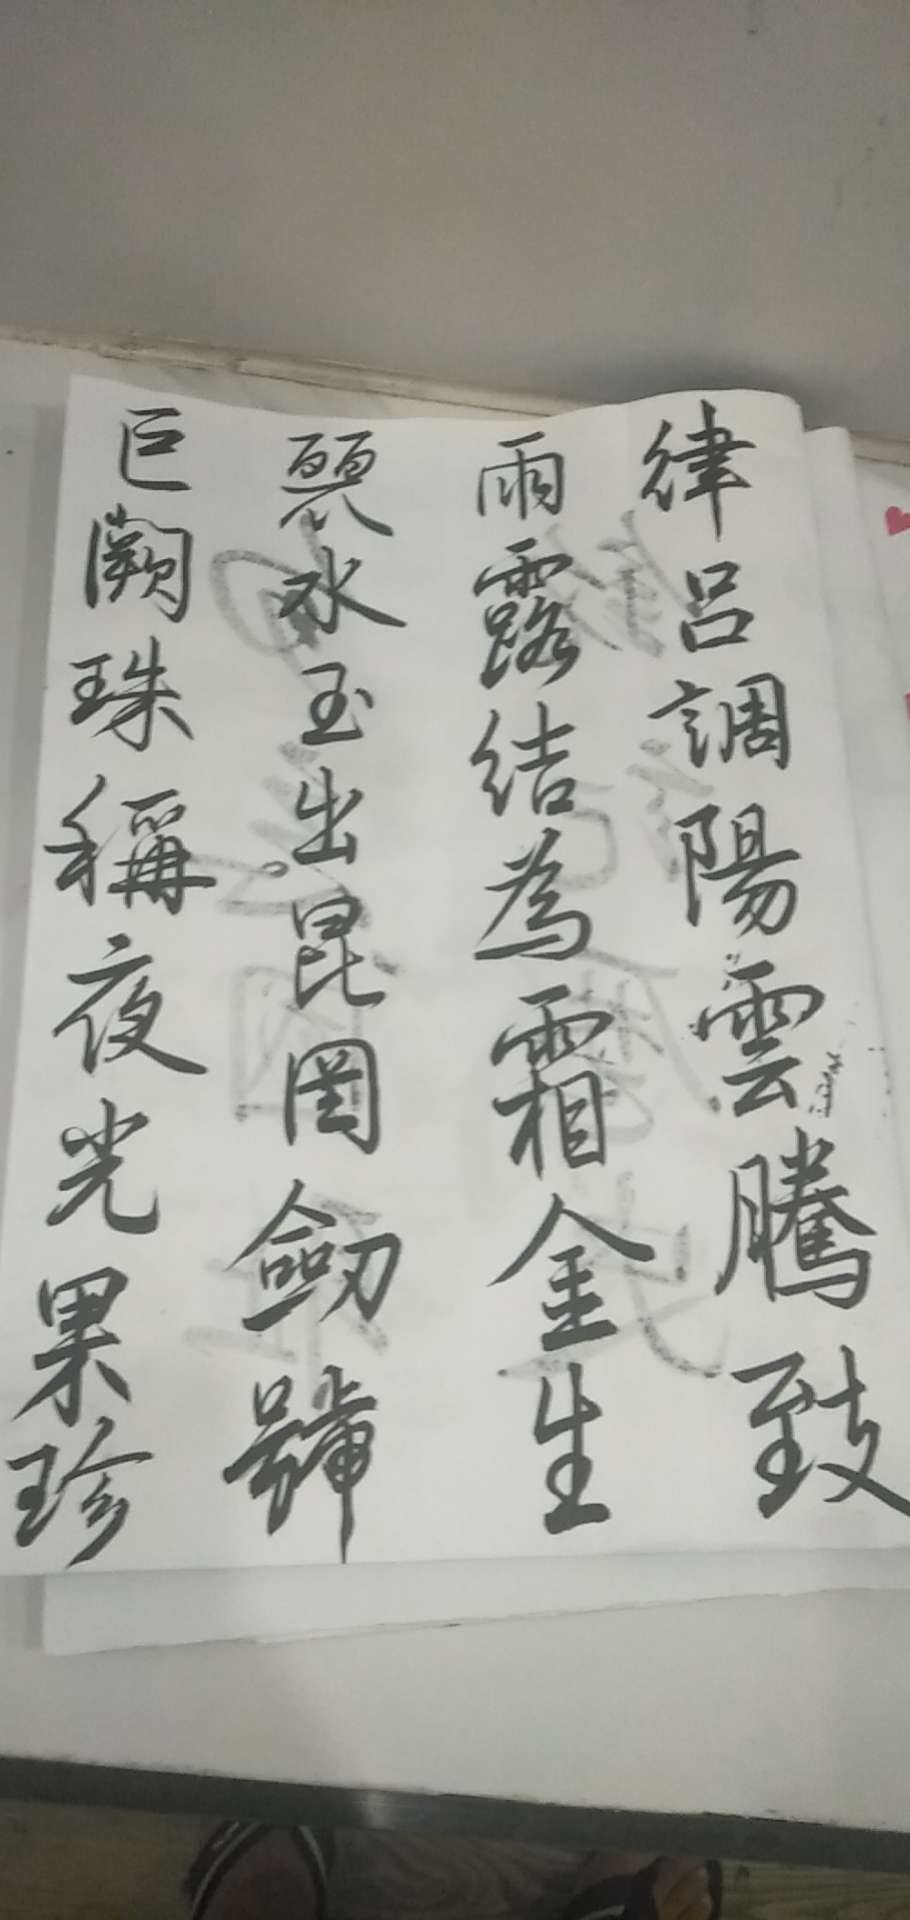 律呂調陽雲騰致
雨露結為霜金生
麗水玉出昆岡劒號
巨闕珠稱夜光果珍